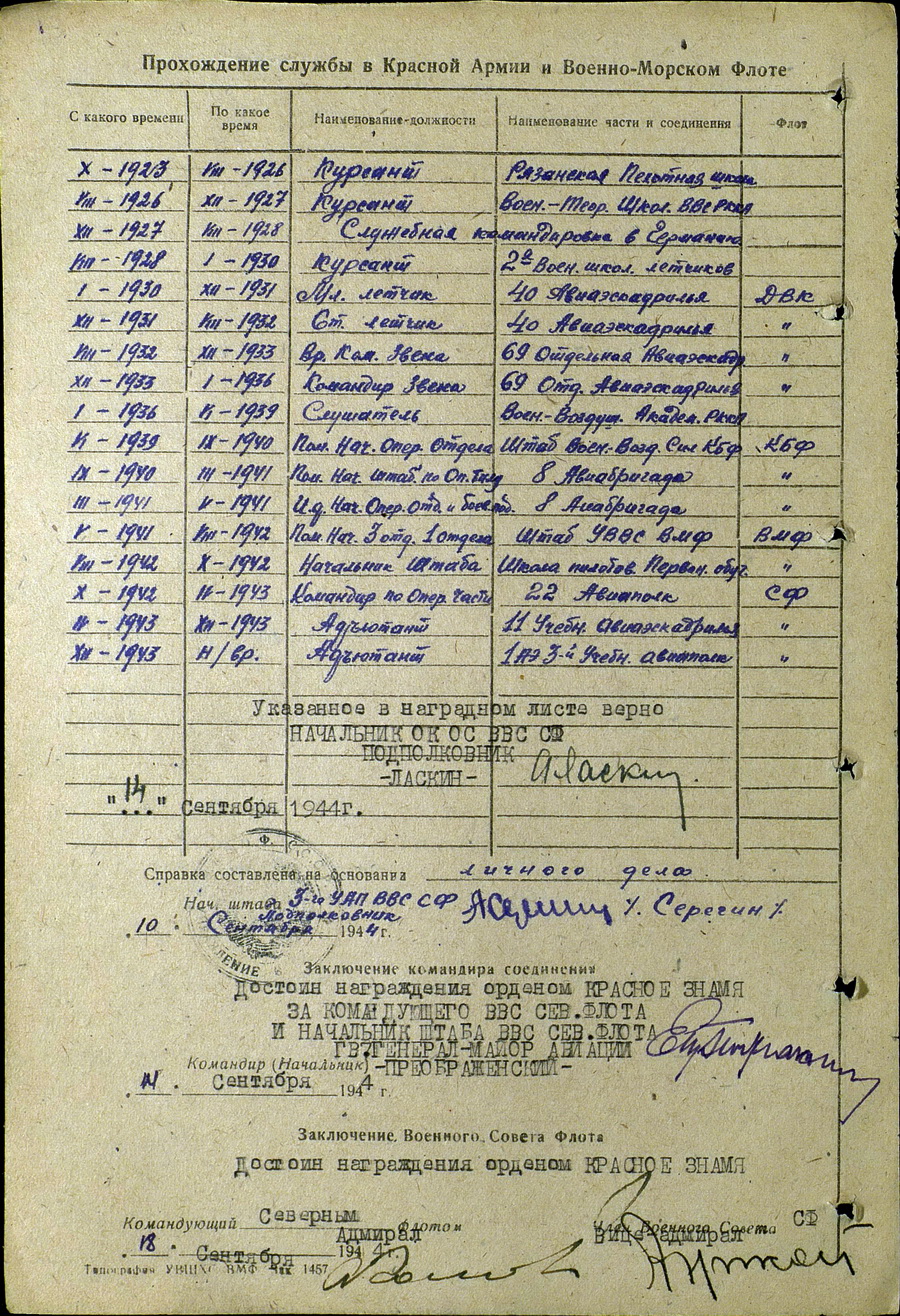 Прохождение службы в Красной Армии и Военно-Морском Флоте
С какого времени По какое время Наименование должности Наименование части и соединения Флот
X – 1923 VIII – 1926 Курсант Рязанская Пехотная школа
VIII – 1926 XII – 1927 Курсант Воен.-Теор. Школ. ВВС РККА
XII – 1927 VIII – 1928 Служебная командировка в Германию
VIII – 1928 I – 1930 Курсант 2я Воен. школ. летчиков
I – 1930 XII – 1931 Мл. летчик 40 Авиаэскадрилья ДВК
XII – 1931 VIII – 1932 Ст. летчик 40 Авиаэскадрилья "
VIII – 1932 XII – 1933 Вр. Ком. Звена 69 Отдельная Авиаэскадр "
XII – 1933 I – 1936 Командир Звена 69 Отд. Авиаэскадрилья "
I – 1936 V – 1939 Слушатель Воен.-Воздуш. Академ. РККА
V – 1939 IX – 1940 Пом. Нач. Опер. Отдела Штаб Воен.-Возд. Сил КБФ КБФ
IX – 1940 III – 1941 Пом. Нач. штаб. по От. Тылу 8 Авиабригада "
III – 1941 V – 1941 И.д. Нач. Опер. Отд. и боев. под. 8 Авиабригада "
V – 1941 VIII – 1942 Пом. Нач. 3 отд. 1 отдела Штаб УВВС ВМФ ВМФ
VIII – 1942 X – 1942 Начальник Штаба Школа пилотов Первон. обуч. "
X – 1942 – 1943 Командир по Опер. Части 22 Авиаполк СФ
– 1943 XII – 1943 Адъютант 11 Учебн. Авиаэскадрилья "
XII – 1943 Н/вр. Адъютант 1 АЭ 3-й Учебн. авиаполк "
Указанное в наградном листе верно
НАЧАЛЬНИК ОК ОС ВВС СФ
ПОДПОЛКОВНИК
-ЛАСКИН- АЛаскин.
"14" Сентября 1944г.
Справка составлена на основании личного дела
Нач. штаба 3-го УАП ВВС СФ
Подполковник /. Серегин /.
10 Сентября 1944 г.
Заключение командира соединения
Достоин награждения орденом КРАСНОЕ ЗНАМЯ
ЗА КОМАНДУЮЩЕГО ВВС СЕВ.ФЛОТА
И НАЧАЛЬНИК ШТАБА ВВС СЕВ.ФЛОТА
ГВ.ГЕНЕРАЛ-МАИОР АВИАЦИИ
Командир (Начальник) -ПРЕОБРАЖЕНСКИЙ-
14 Сентября 1944 г.
Заключение Военного Совета Флота
Достоин награждения орденом КРАСНОЕ ЗНАМЯ
Командующий Северным флотом Член Военного Совета СФ
Адмирал Вице-адмирал
18 Сентября 1944г.
Типография УВЦХС ВМФ Зак 1457